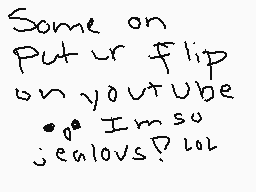 Some on
put ur flip
on youtube
I'm so
jealous? LOL